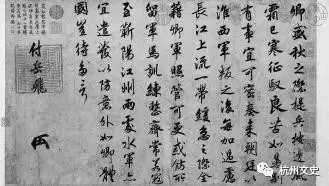 卿盛秋之際提兵按邊風
霜已寒征馭良苦如是別
有事宜可密奏來朝廷以
淮西軍叛之後每加過慮
長江上流一帶緩急之際全
藉卿軍照管可更戒飭所
留軍馬訓練整齊常若寇
至蘄陽江州兩處水軍亦
宜遣發以防意外如卿體
國豈待多言
付岳飛
杭州文史